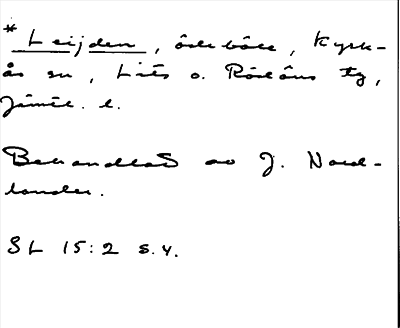 * Leijden, ödeböle, Kyrk-
ås sn, Lits o. Rödöns tg,
Jämtl. l.
Behandlad av J. Nord-
lander.
SL 15:2 s.4.